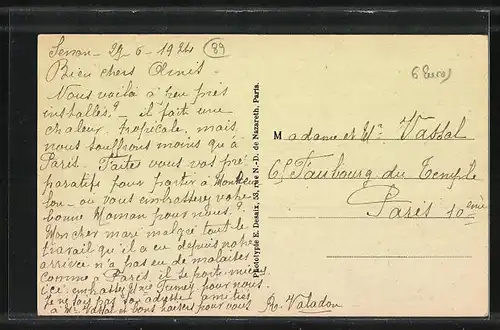 29-6-1924 (89)
Bien chers Amis.
Nous voilà à peu près
installés? — il fait une
chaleur tropicale, mais
nous souffrons moins qu'à
Paris. Faite vous vos pré
paratifs pour partir à
ou vous embrasserez votre
bonne Maman pour nous?
Mon cher mari malgré tout le
travail qu'il a eu depuis notre
arrivée n'a pas eu de malaises
comme à Paris, il se porte mieux
ici. embrassez Mme pour nous
je ne sais pas son adresse, amitiés
à Mr Vassal et bons baisers pour vous
Valadon
Phototypie E. Desaix, 53, rue N.-D. de Nazareth, Paris.
6 Euros
Madame et Mr Vassal
Faubourg du Temple
Paris 10ème